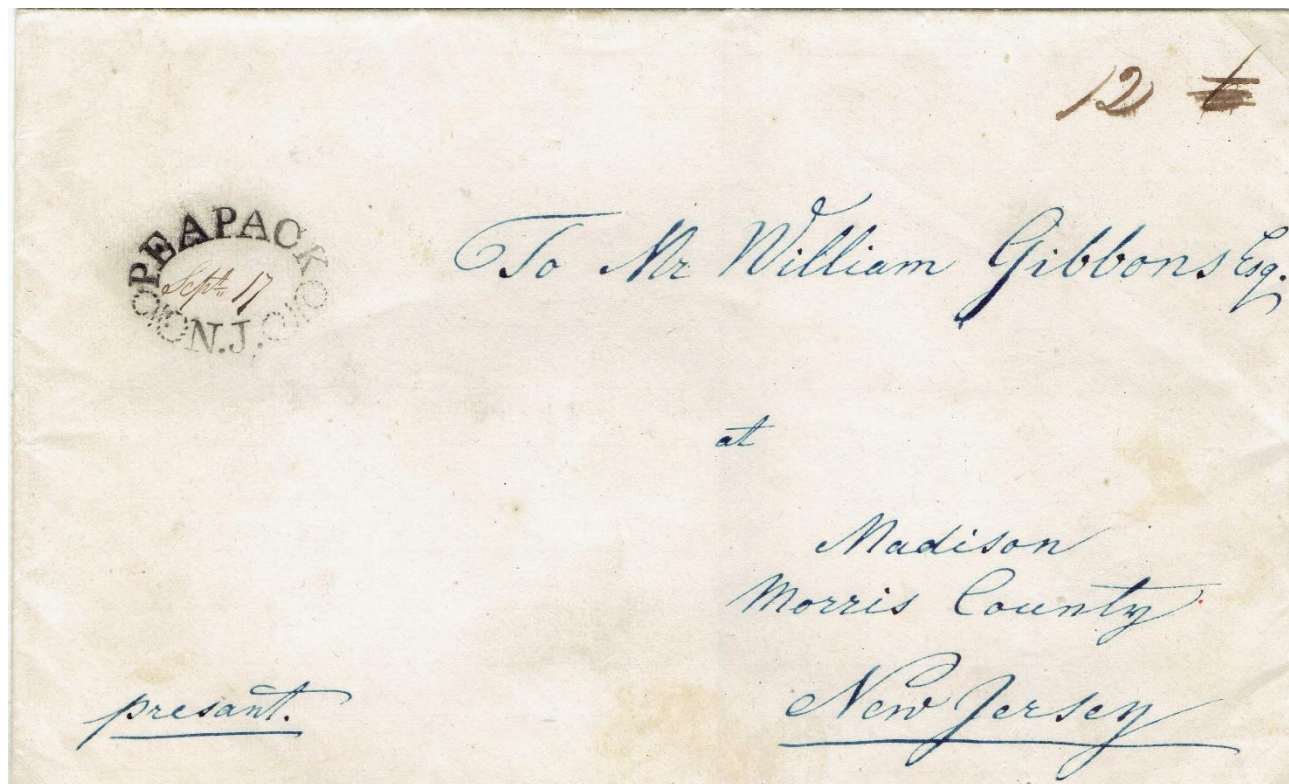 12
PEAPACK
Sept. 17
N.J.
To Mr William Gibbons Esq.
at
Madison
Morris County
New Jersey
presant.